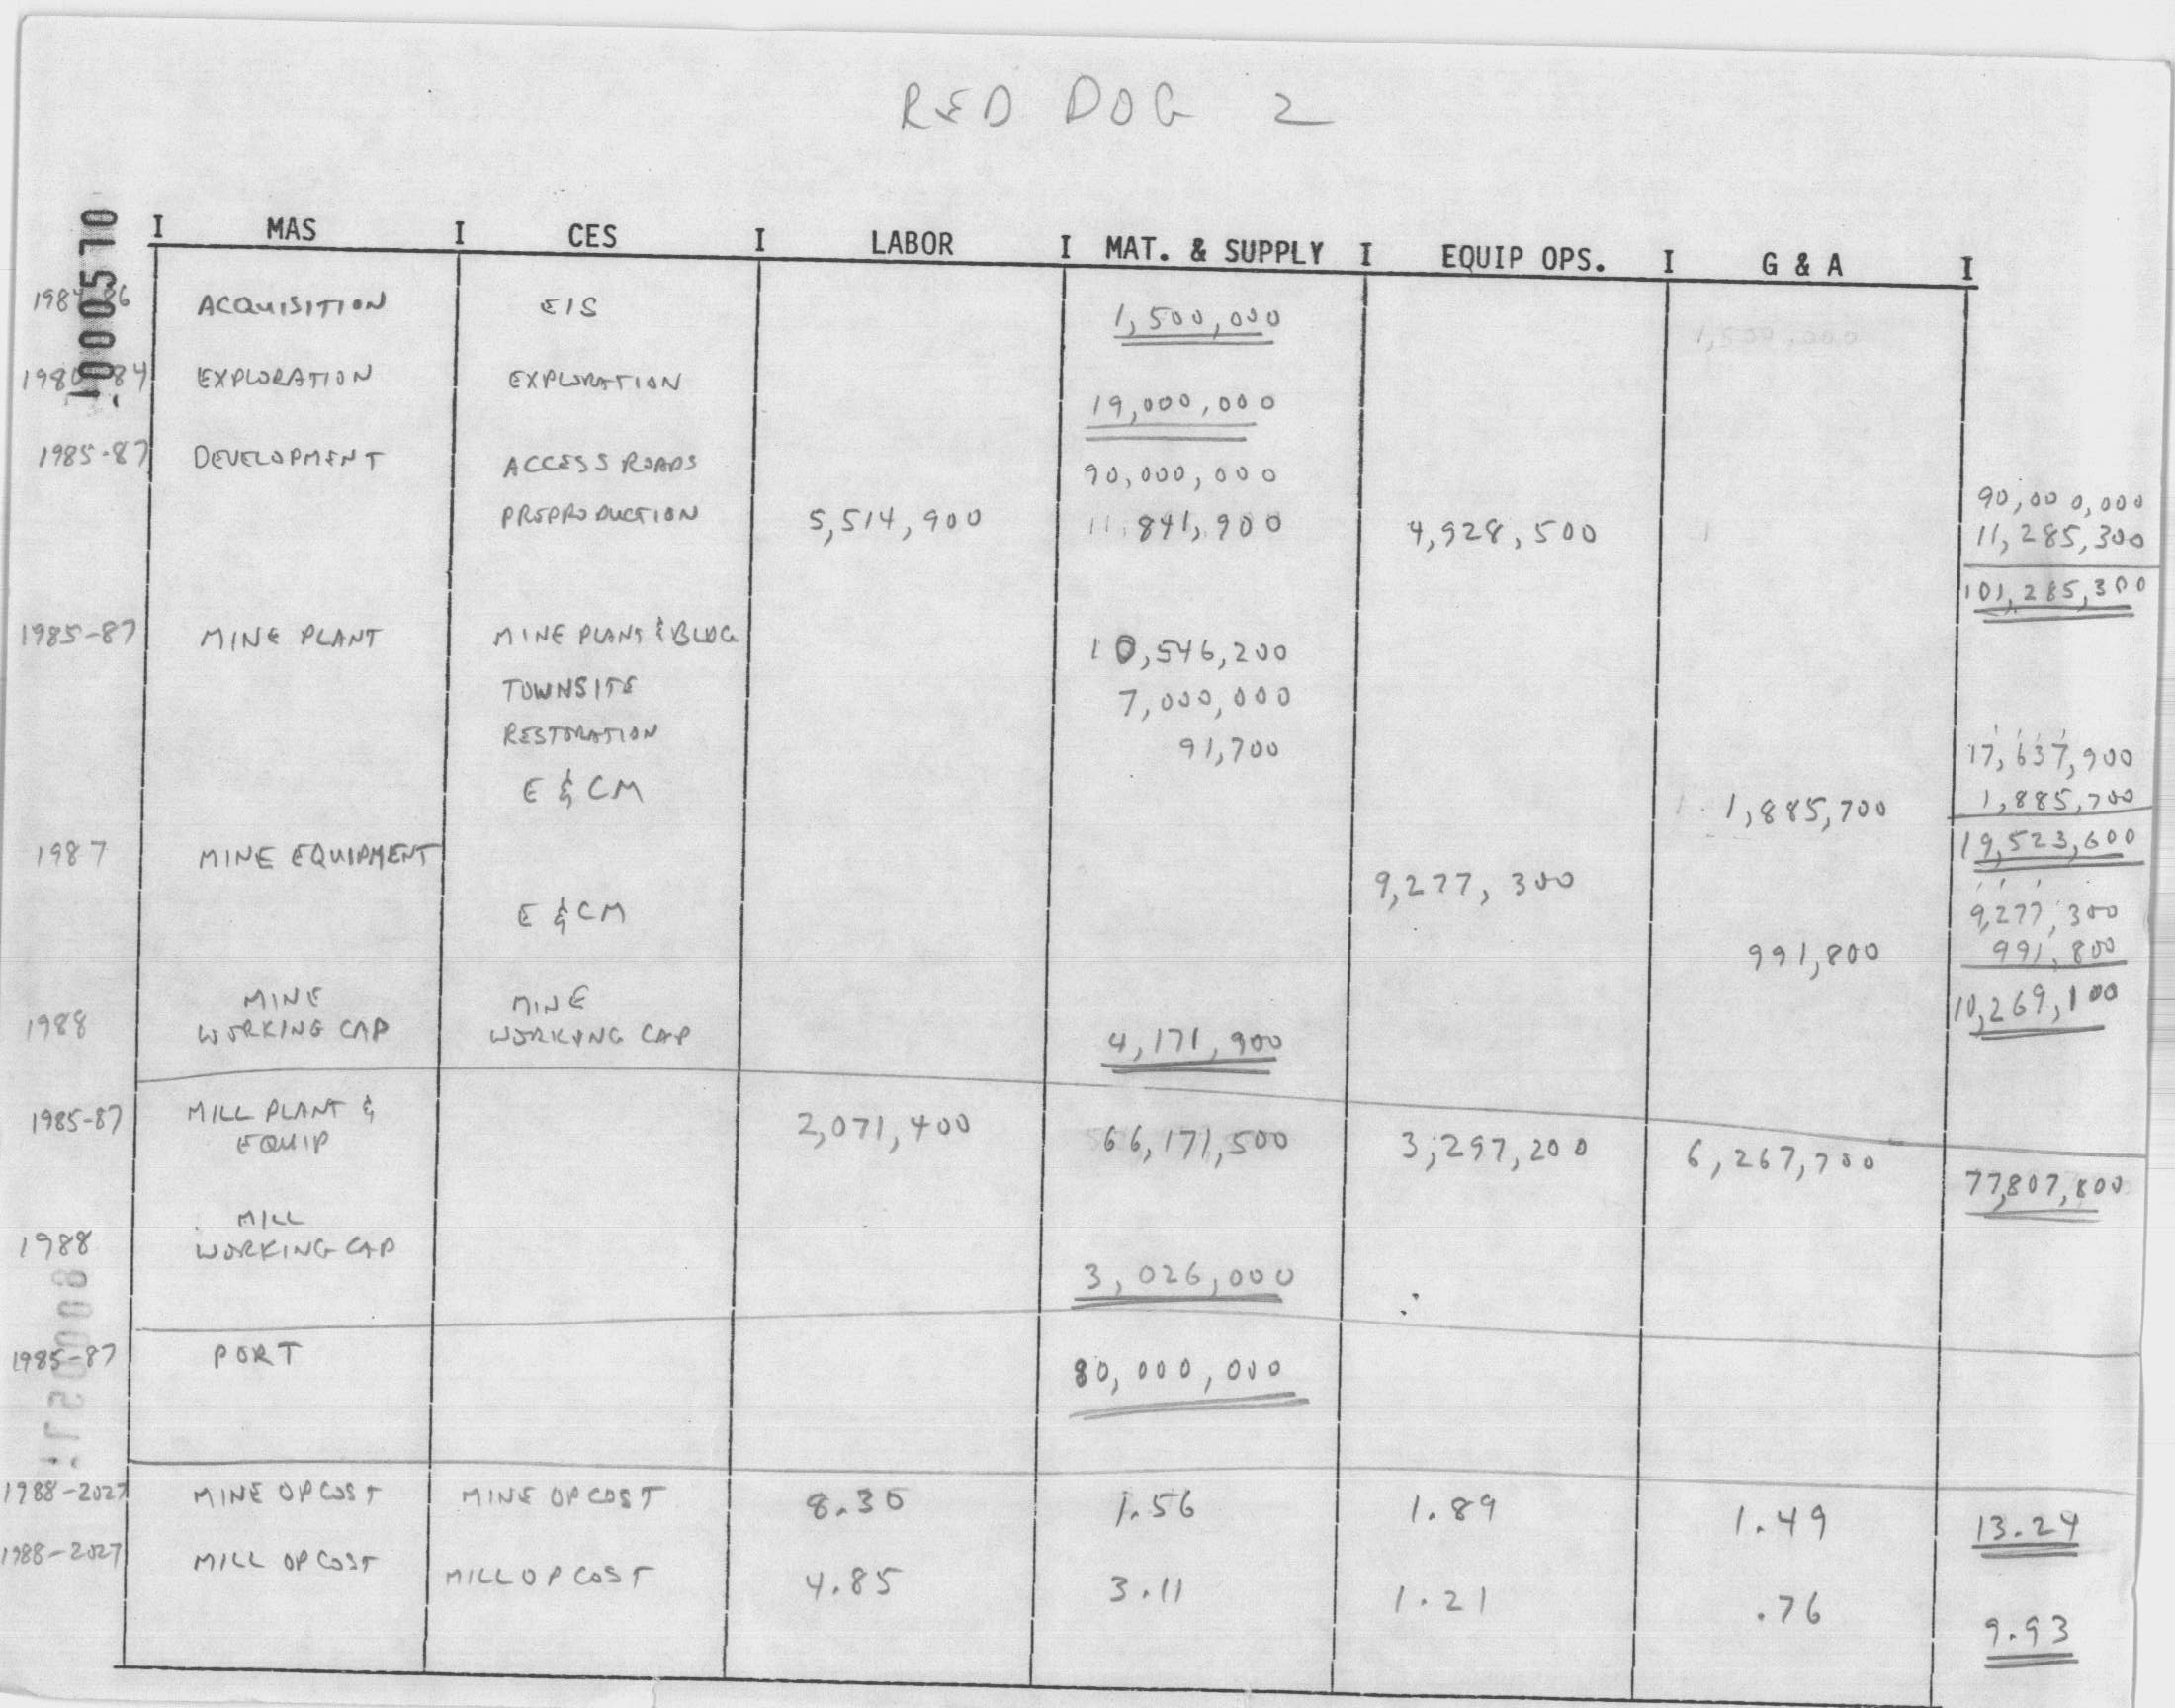 RED DOG 2
I MAS I CES I LABOR I MAT. & SUPPLY I EQUIP OPS. I G & A I
ACQUISITION EIS 1,500,000 1,500,000
EXPLORATION EXPLORATION 19,000,000
1985-87 DEVELOPMENT ACCESS ROADS 90,000,000 90,000,000
PREPRODUCTION 5,514,900 841,900 4,928,500 11,285,300
101,285,300
1985-87 MINE PLANT MINE PLANT & BLDG 10,546,200
TOWNSITE 7,000,000
RESTORATION 91,700 17,637,900
E & CM 1,885,700 1,885,700
19,523,600
1987 MINE EQUIPMENT 9,277,300 9,277,300
E & CM 991,800 991,800
10,269,100
MINE MINE
1988 WORKING CAP WORKING CAP 4,171,900
1985-87 MILL PLANT & 2,071,400 66,171,500 3,297,200 6,267,700 77,807,800
EQUIP
MILL
1988 WORKING CAP 3,026,000
1985-87 PORT 80,000,000
1988-2027 MINE OP COST MINE OP COST 8.30 1.56 1.89 1.49 13.24
1988-2027 MILL OP COST MILL OP COST 4.85 3.11 1.21 .76 9.93
1000570